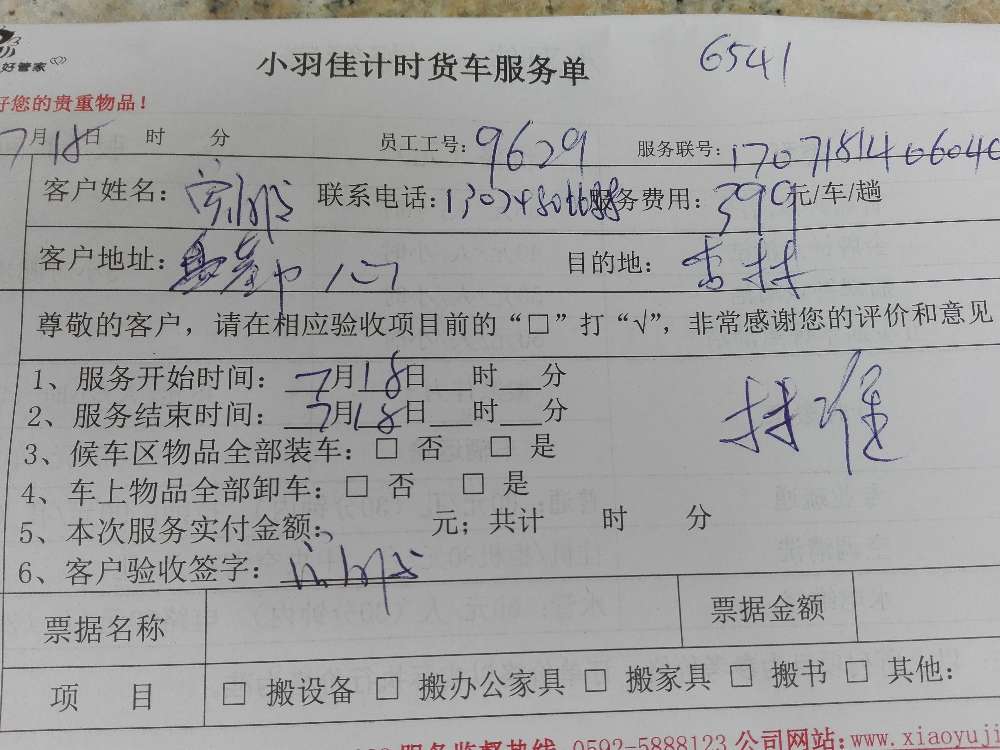 好管家
小羽佳计时货车服务单 6541
好您的贵重物品！
7月18日 时 分 员工工号：9629 服务联号：1707181406040
客户姓名： 联系电话： 服务费用：399元/车/趟
客户地址： 目的地：杏林
尊敬的客户，请在相应验收项目前的“□”打“√”，非常感谢您的评价和意见
1、服务开始时间：7月18日___时___分
2、服务结束时间：7月18日___时___分
3、候车区物品全部装车：□ 否 □ 是
4、车上物品全部卸车：□ 否 □ 是
5、本次服务实付金额： 元；共计 时 分
6、客户验收签字：
票据名称 票据金额
项 目 □ 搬设备 □ 搬办公家具 □ 搬家具 □ 搬书 □ 其他：
服务监督热线 0592-5888123 公司网站：www.xiaoyuji